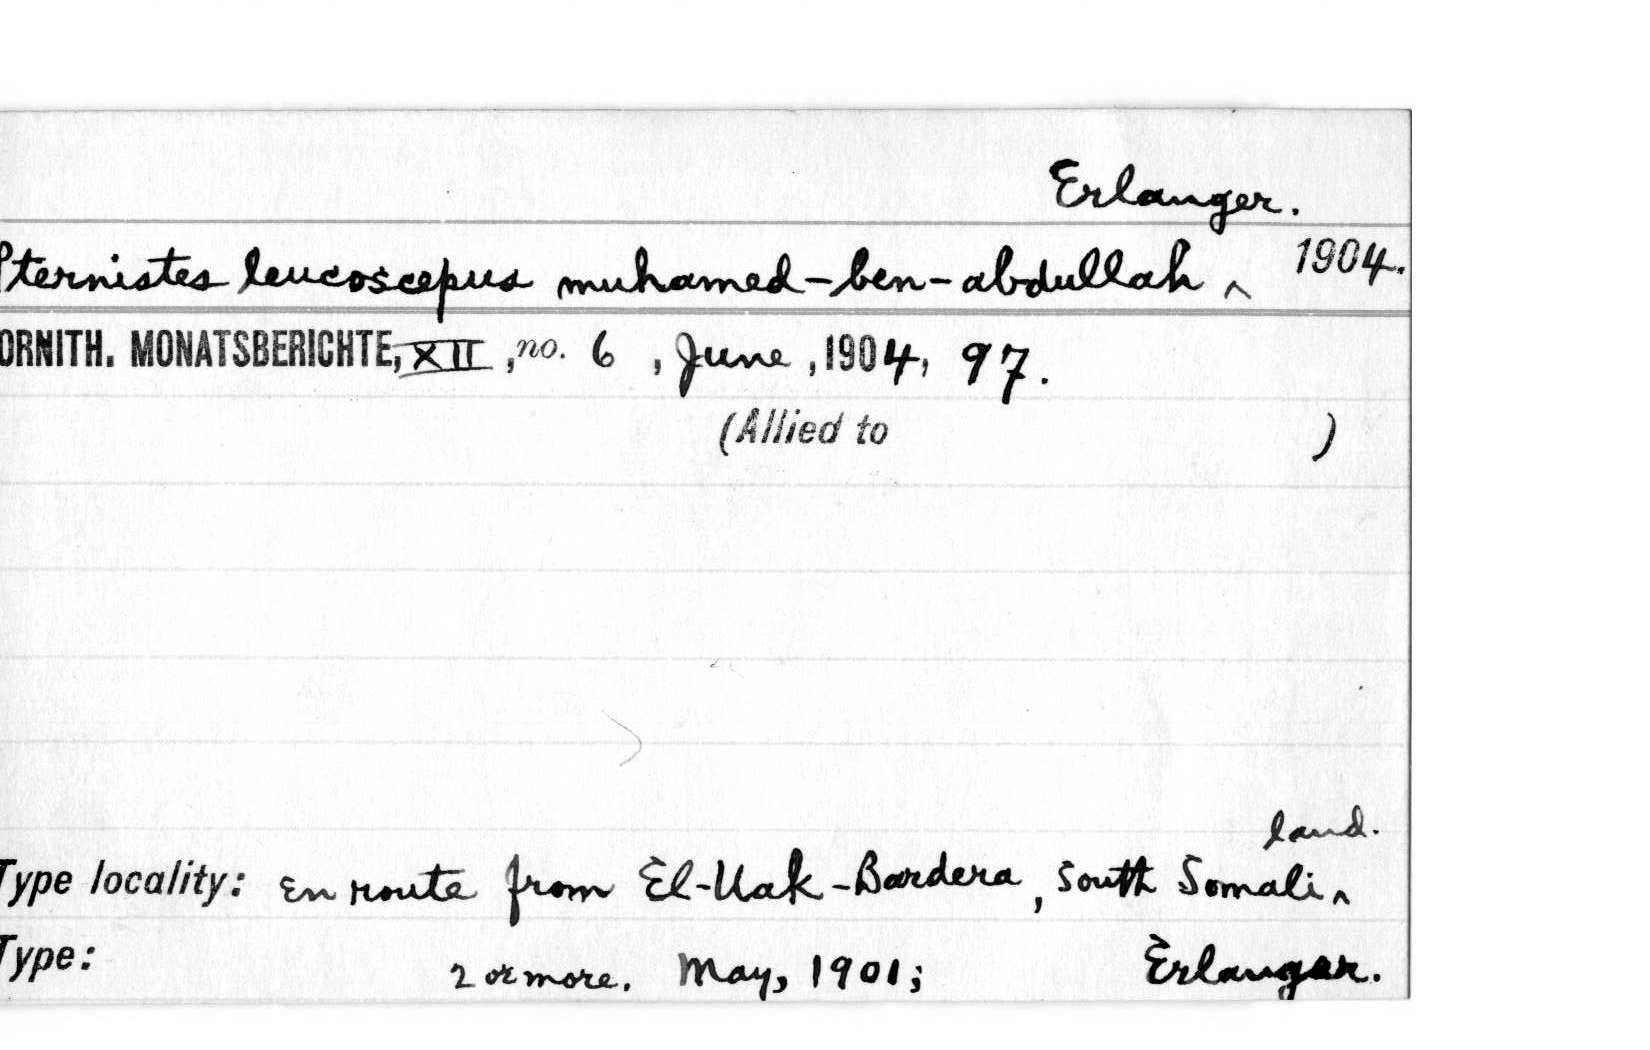 Erlanger.
Pternistes leucoscepus muhamed-ben-abdullah ^ 1904.
ORNITH. MONATSBERICHTE, XII, no. 6, June, 1904, 97.
(Allied to )
land.
Type locality: En route from El-Uak-Bardera, South Somali ^
Type: 2 or more. May, 1901; Erlanger.